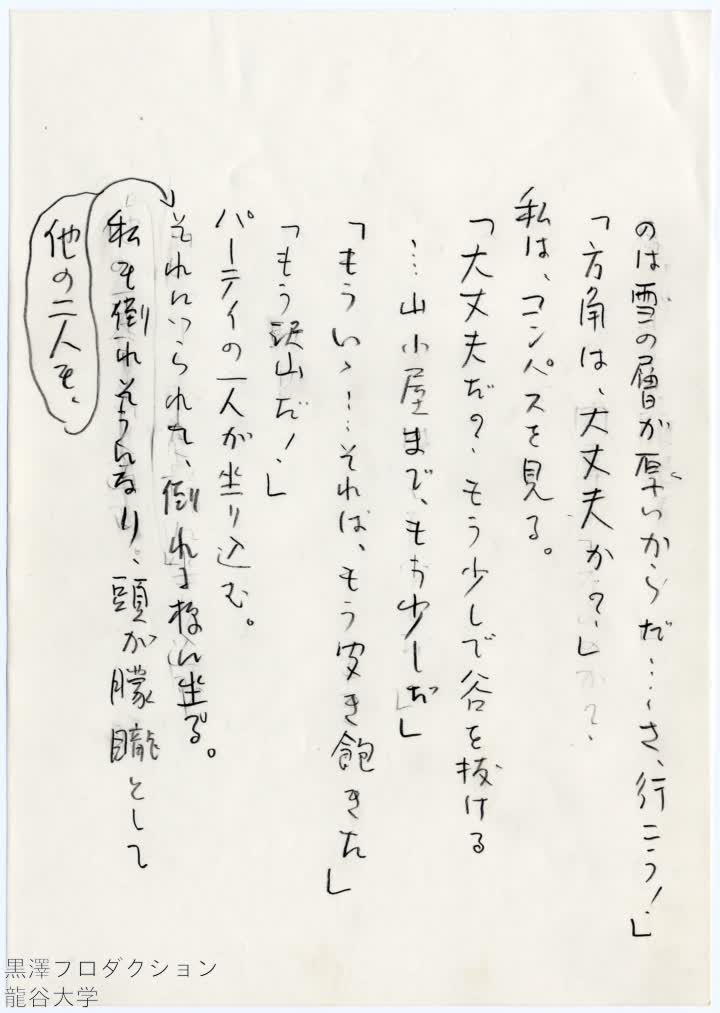 のは雪の層が厚いからだ…さ、行こう!」
「方角は、大丈夫か?」
私は、コンパスを見る。
「大丈夫だ?もう少しで谷を抜ける
…山小屋まで、もう少しだ」
「もういゝ…それは、もう聞き飽きた」
「もう沢山だ!」
パーティの一人が坐り込む。
それにつられて、倒れる様に坐る。
私も倒れそうになり、頭が朦朧として
他の二人も、
黒澤プロダクション
龍谷大学